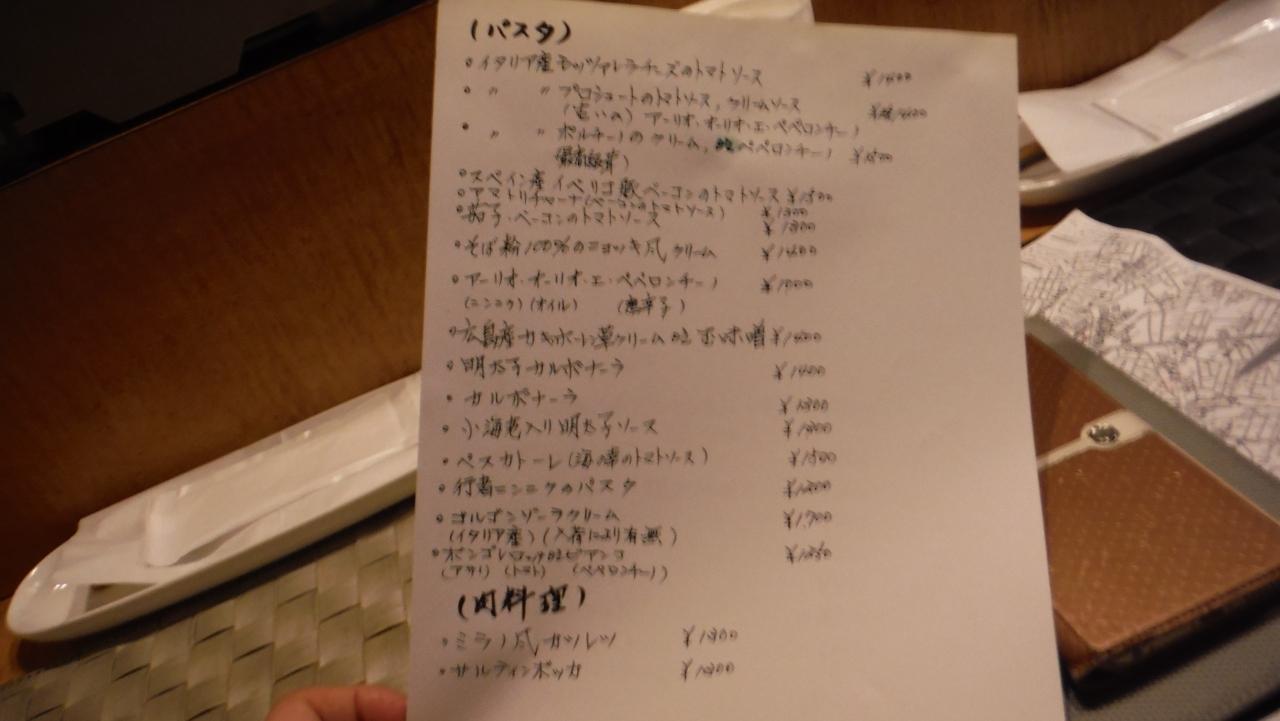 (パスタ)
・イタリア産モッツァレラチーズのトマトソース
・ 〃 〃 プロシュートのトマトソース, クリームソース
アーリオ・オーリオ・エ・ペペロンチーノ
・ 〃 〃 ポルチーノのクリーム, ペペロンチーノ
・スペイン産イベリコ豚ベーコンのトマトソース ¥1500
・アマトリチャーナ(ベーコンのトマトソース) ¥1300
・茄子・ベーコンのトマトソース ¥1300
・そば粉100%のニョッキ風クリーム ¥1400
・アーリオ・オーリオ・エ・ペペロンチーノ
(ニンニク)(オイル) (唐辛子)
・広島産カキホーレン草クリーム or 白味噌
・明太子カルボナーラ ¥1400
・カルボナーラ ¥1300
・小海老入り明太子ソース ¥1300
・ペスカトーレ(海の幸のトマトソース) ¥1500
・行者ニンニクのパスタ
・ゴルゴンゾーラクリーム
(イタリア産)(入荷により有無)
・ボンゴレロッソorビアンコ
(アサリ) (トマト) (ペペロンチーノ)
(肉料理)
・ミラノ風カツレツ
・サルティンボッカ